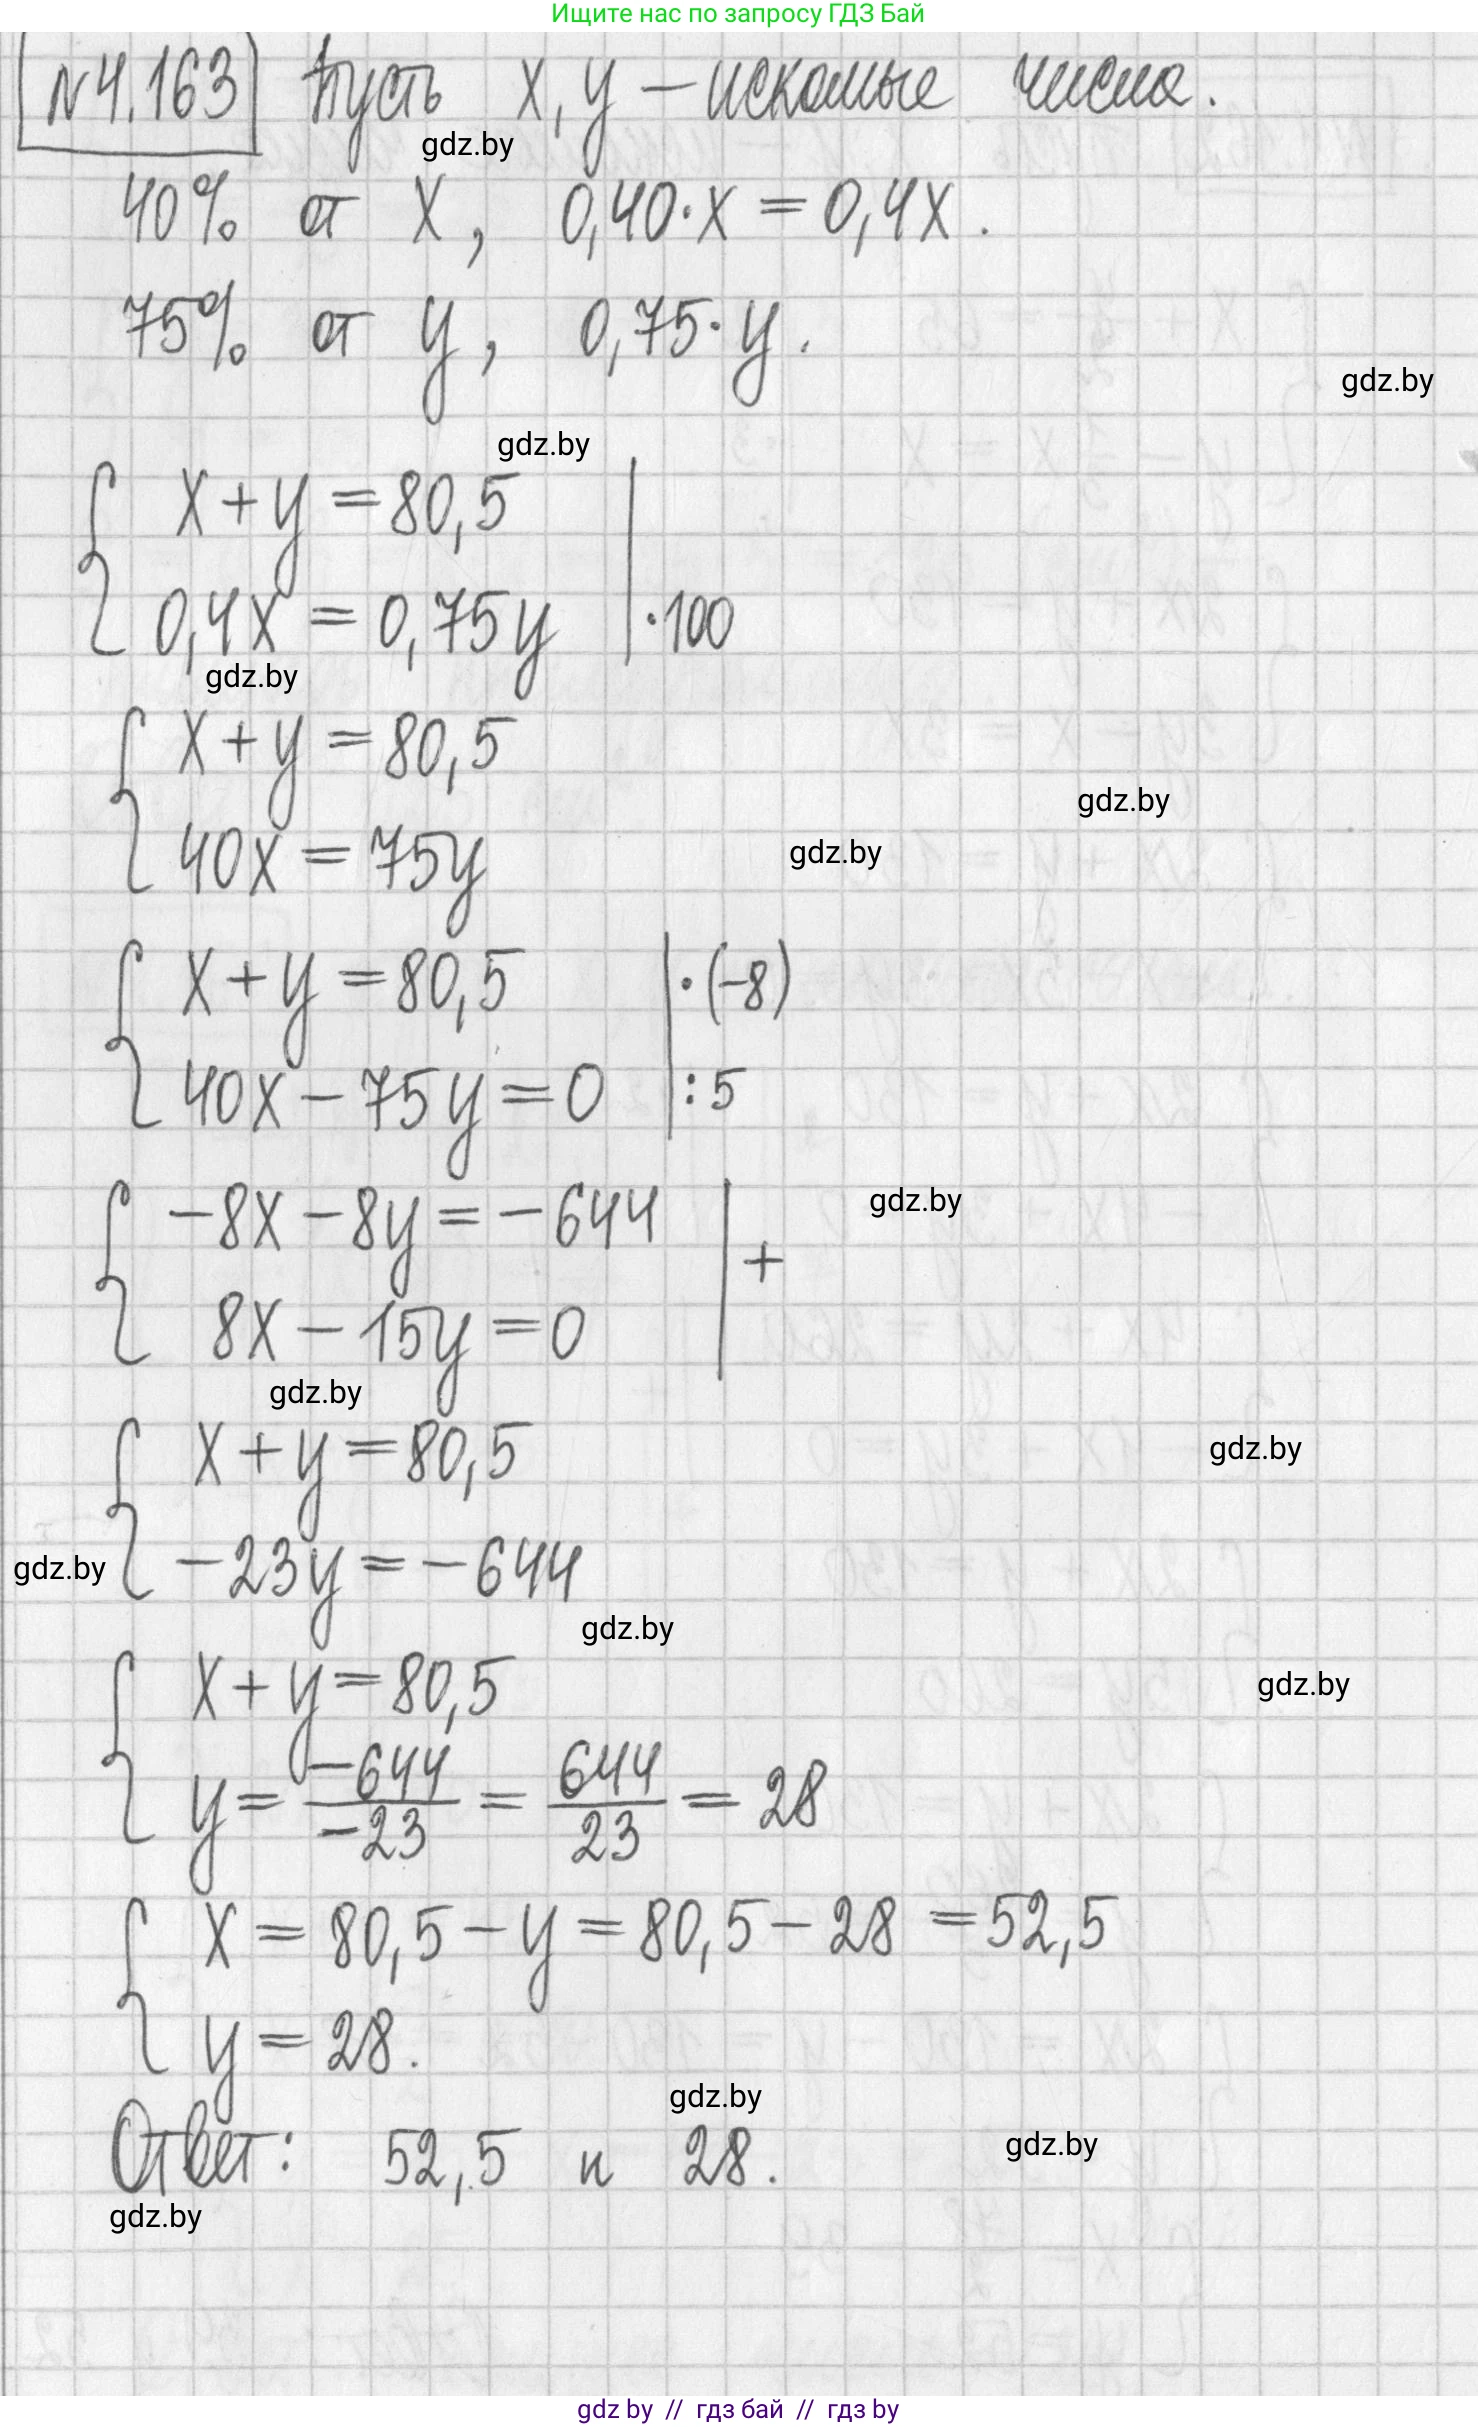 Ищите нас по запросу ГДЗ Бай
N4.163 Пусть x, y – искомые числа.
gdz.by
40% от x, 0,40·x = 0,4x.
75% от y, 0,75·y.
gdz.by
gdz.by
{ x + y = 80,5 |
{ 0,4x = 0,75y | ·100
gdz.by
{ x + y = 80,5
gdz.by
{ 40x = 75y
gdz.by
{ x + y = 80,5 | ·(-8)
{ 40x – 75y = 0 | :5
{ -8x – 8y = -644 | +
gdz.by
{ 8x – 15y = 0
gdz.by
{ x + y = 80,5
gdz.by
{ -23y = -644
gdz.by
gdz.by
{ x + y = 80,5
gdz.by
{ y = -644/-23 = 644/23 = 28
{ x = 80,5 – y = 80,5 – 28 = 52,5
{ y = 28.
gdz.by
Ответ: 52,5 и 28.
gdz.by
gdz.by
gdz by // гдз бай // гдз by